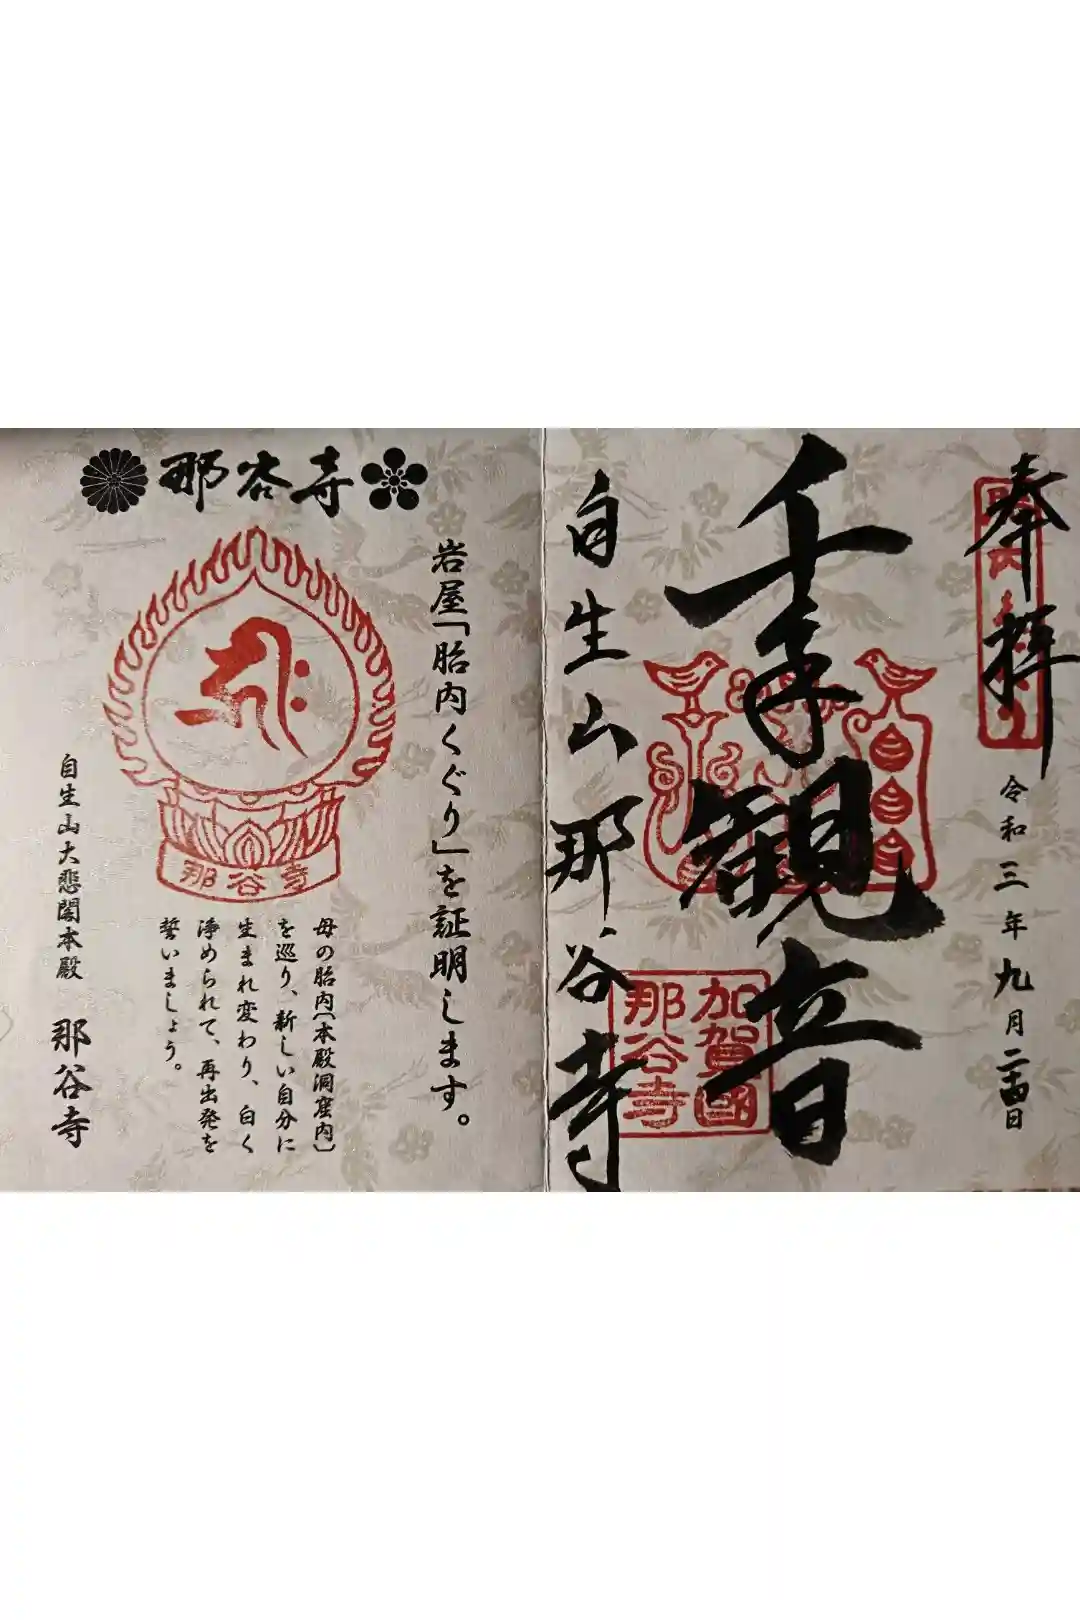 奉拝
令和三年九月二十四日
千手観音
自生山那谷寺
加賀國
那谷寺
那谷寺
岩屋「胎内くぐり」を証明します。
那谷寺
母の胎内〔本殿洞窟内〕
を巡り、新しい自分に
生まれ変わり、白く
浄められて、再出発を
誓いましょう。
自生山大悲閣本殿 那谷寺